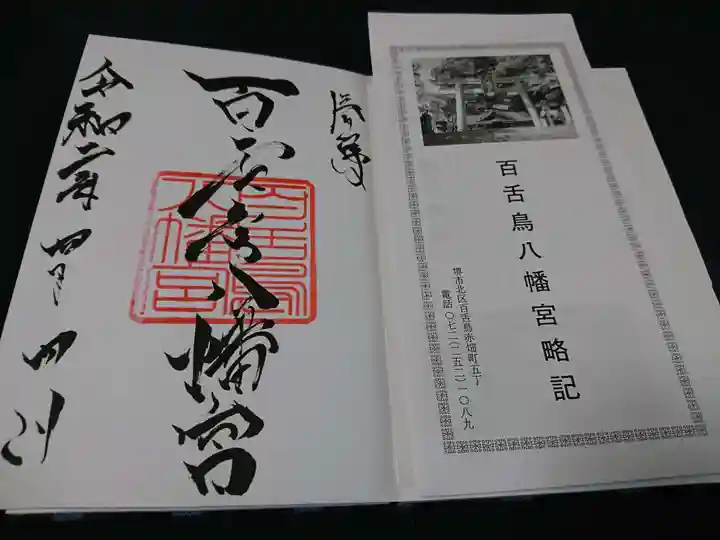 奉拝
百舌鳥八幡宮
百舌鳥
八幡宮
令和二年
四月
四日
百舌鳥八幡宮略記
堺市北区百舌鳥赤畑町五丁
電話〇七二(二五二)一〇八九